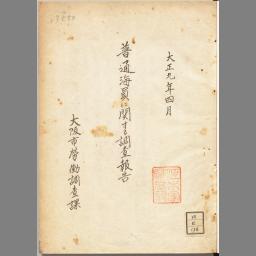 大正九年四月
普通海員に関する調査報告
大阪市労働調査課